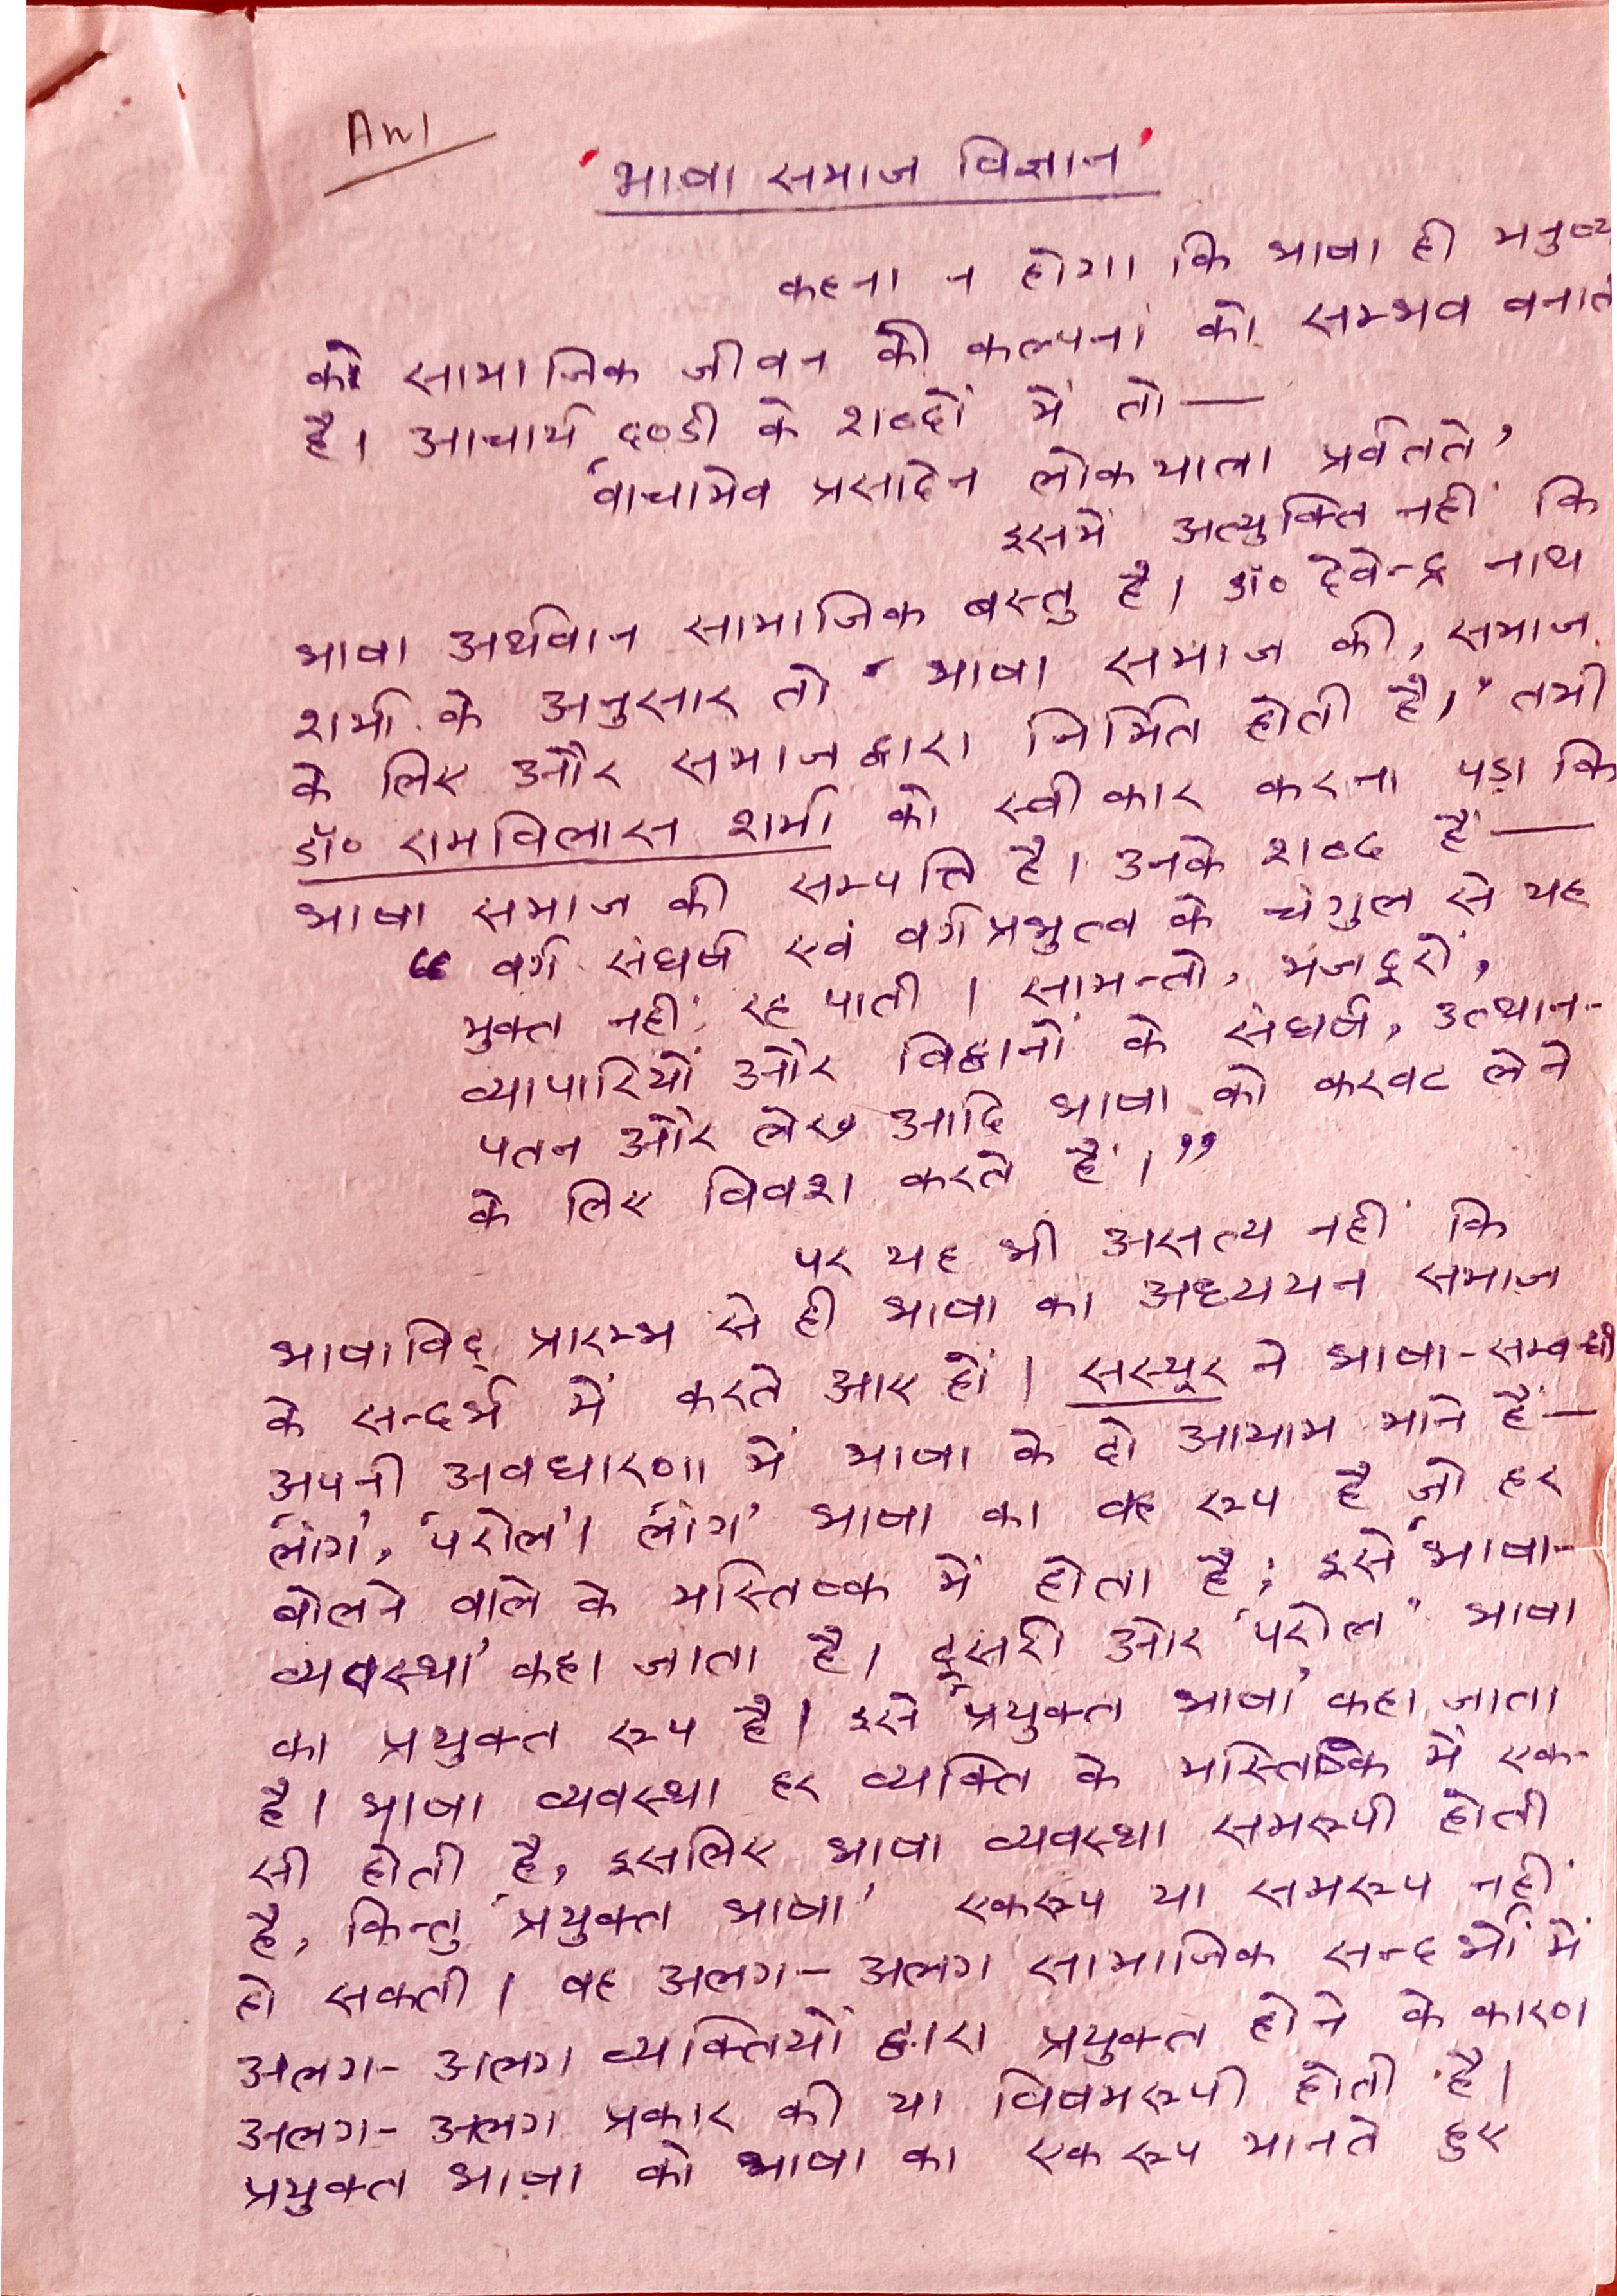 Ans
'भाषा समाज विज्ञान'
कहना न होगा कि भाषा ही मनुष्य
को सामाजिक जीवन की कल्पना को सम्भव बनाते
है। आचार्य दण्डी के शब्दों में तो —
'वाचामेव प्रसादेन लोकयात्रा प्रर्वतते'
इसमें अत्युक्ति नहीं कि
भाषा अर्थवान सामाजिक वस्तु है। डॉ० देवेन्द्र नाथ
शर्मा के अनुसार तो 'भाषा समाज की, समाज
के लिए और समाज द्वारा निर्मित होती है।' तभी
डॉ० रामविलास शर्मा को स्वीकार करना पड़ा कि
भाषा समाज की सम्पत्ति है। उनके शब्द हैं —
“ वर्ग संघर्ष एवं वर्ग प्रभुत्व के चंगुल से यह
मुक्त नहीं रह पाती। सामन्तो, मजदूरों,
व्यापारियों और विद्वानों के संघर्ष, उत्थान-
पतन और लेख आदि भाषा को करवट लेने
के लिए विवश करते हैं।”
पर यह भी असत्य नहीं कि
भाषाविद् प्रारम्भ से ही भाषा का अध्ययन समाज
के सन्दर्भ में करते आए हों। सस्यूर ने भाषा-सम्बन्धी
अपनी अवधारणा में भाषा के दो आयाम माने हैं —
'लांग', 'परोल'। 'लांग' भाषा का वह रूप है जो हर
बोलने वाले के मस्तिष्क में होता है; इसे 'भाषा-
व्यवस्था' कहा जाता है। दूसरी ओर 'परोल' भाषा
का प्रयुक्त रूप है। इसे 'प्रयुक्त भाषा' कहा जाता
है। भाषा व्यवस्था हर व्यक्ति के मस्तिष्क में एक-
सी होती है, इसलिए भाषा व्यवस्था समरूपी होती
है, किन्तु 'प्रयुक्त भाषा' एकरूप या समरूप नहीं
हो सकती। वह अलग-अलग सामाजिक सन्दर्भों में
अलग-अलग व्यक्तियों द्वारा प्रयुक्त होने के कारण
अलग-अलग प्रकार की या विषमरूपी होती है।
प्रयुक्त भाषा को भाषा का एक रूप मानते हुए